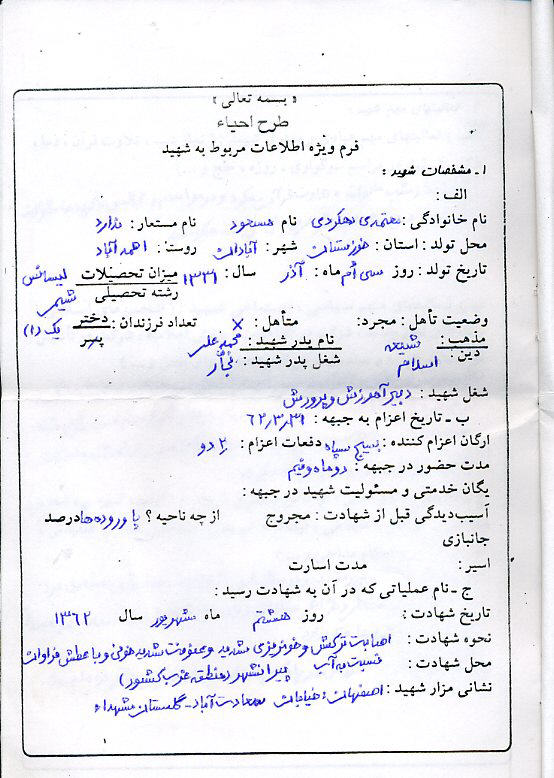 « بسمه تعالی »
طرح احیاء
فرم ویژه اطلاعات مربوط به شهید
۱ـ مشخصات شهید :
الف :
نام خانوادگی : معتمدی دهکردی نام مسعود نام مستعار : ندارد
محل تولد : استان : خوزستان شهر : آبادان روستا : احمدآباد
تاریخ تولد : روز سی اُم ماه : آذر سال : ۱۳۳۱ میزان تحصیلات لیسانس
رشته تحصیلی شیمی
وضعیت تأهل : مجرد : متأهل : × تعداد فرزندان : دختر یک (۱)
پسر
مذهب : شیعه نام پدر شهید : محمدعلی
دین : اسلام شغل پدر شهید : نجّار
شغل شهید : دبیر آموزش و پرورش
ب ـ تاریخ اعزام به جبهه : ۶۲/۳/۳۱
ارگان اعزام کننده : بسیج سپاه دفعات اعزام : دو
مدت حضور در جبهه : دو ماه و نیم
یگان خدمتی و مسئولیت شهید در جبهه :
آسیب‌دیدگی قبل از شهادت : مجروح از چه ناحیه ؟ پا و روده‌ها درصد
جانبازی
اسیر : مدت اسارت
ج ـ نام عملیاتی که در آن به شهادت رسید :
تاریخ شهادت : روز هشتم ماه شهریور سال ۱۳۶۲
نحوه شهادت : اصابت ترکش و خونریزی شدید و عفونت شدید خونی و با عطش فراوان
نسبت به آب
محل شهادت : پیرانشهر (منطقه غرب کشور)
نشانی مزار شهید : اصفهان : خیابان سعادت آباد - گلستان شهداء